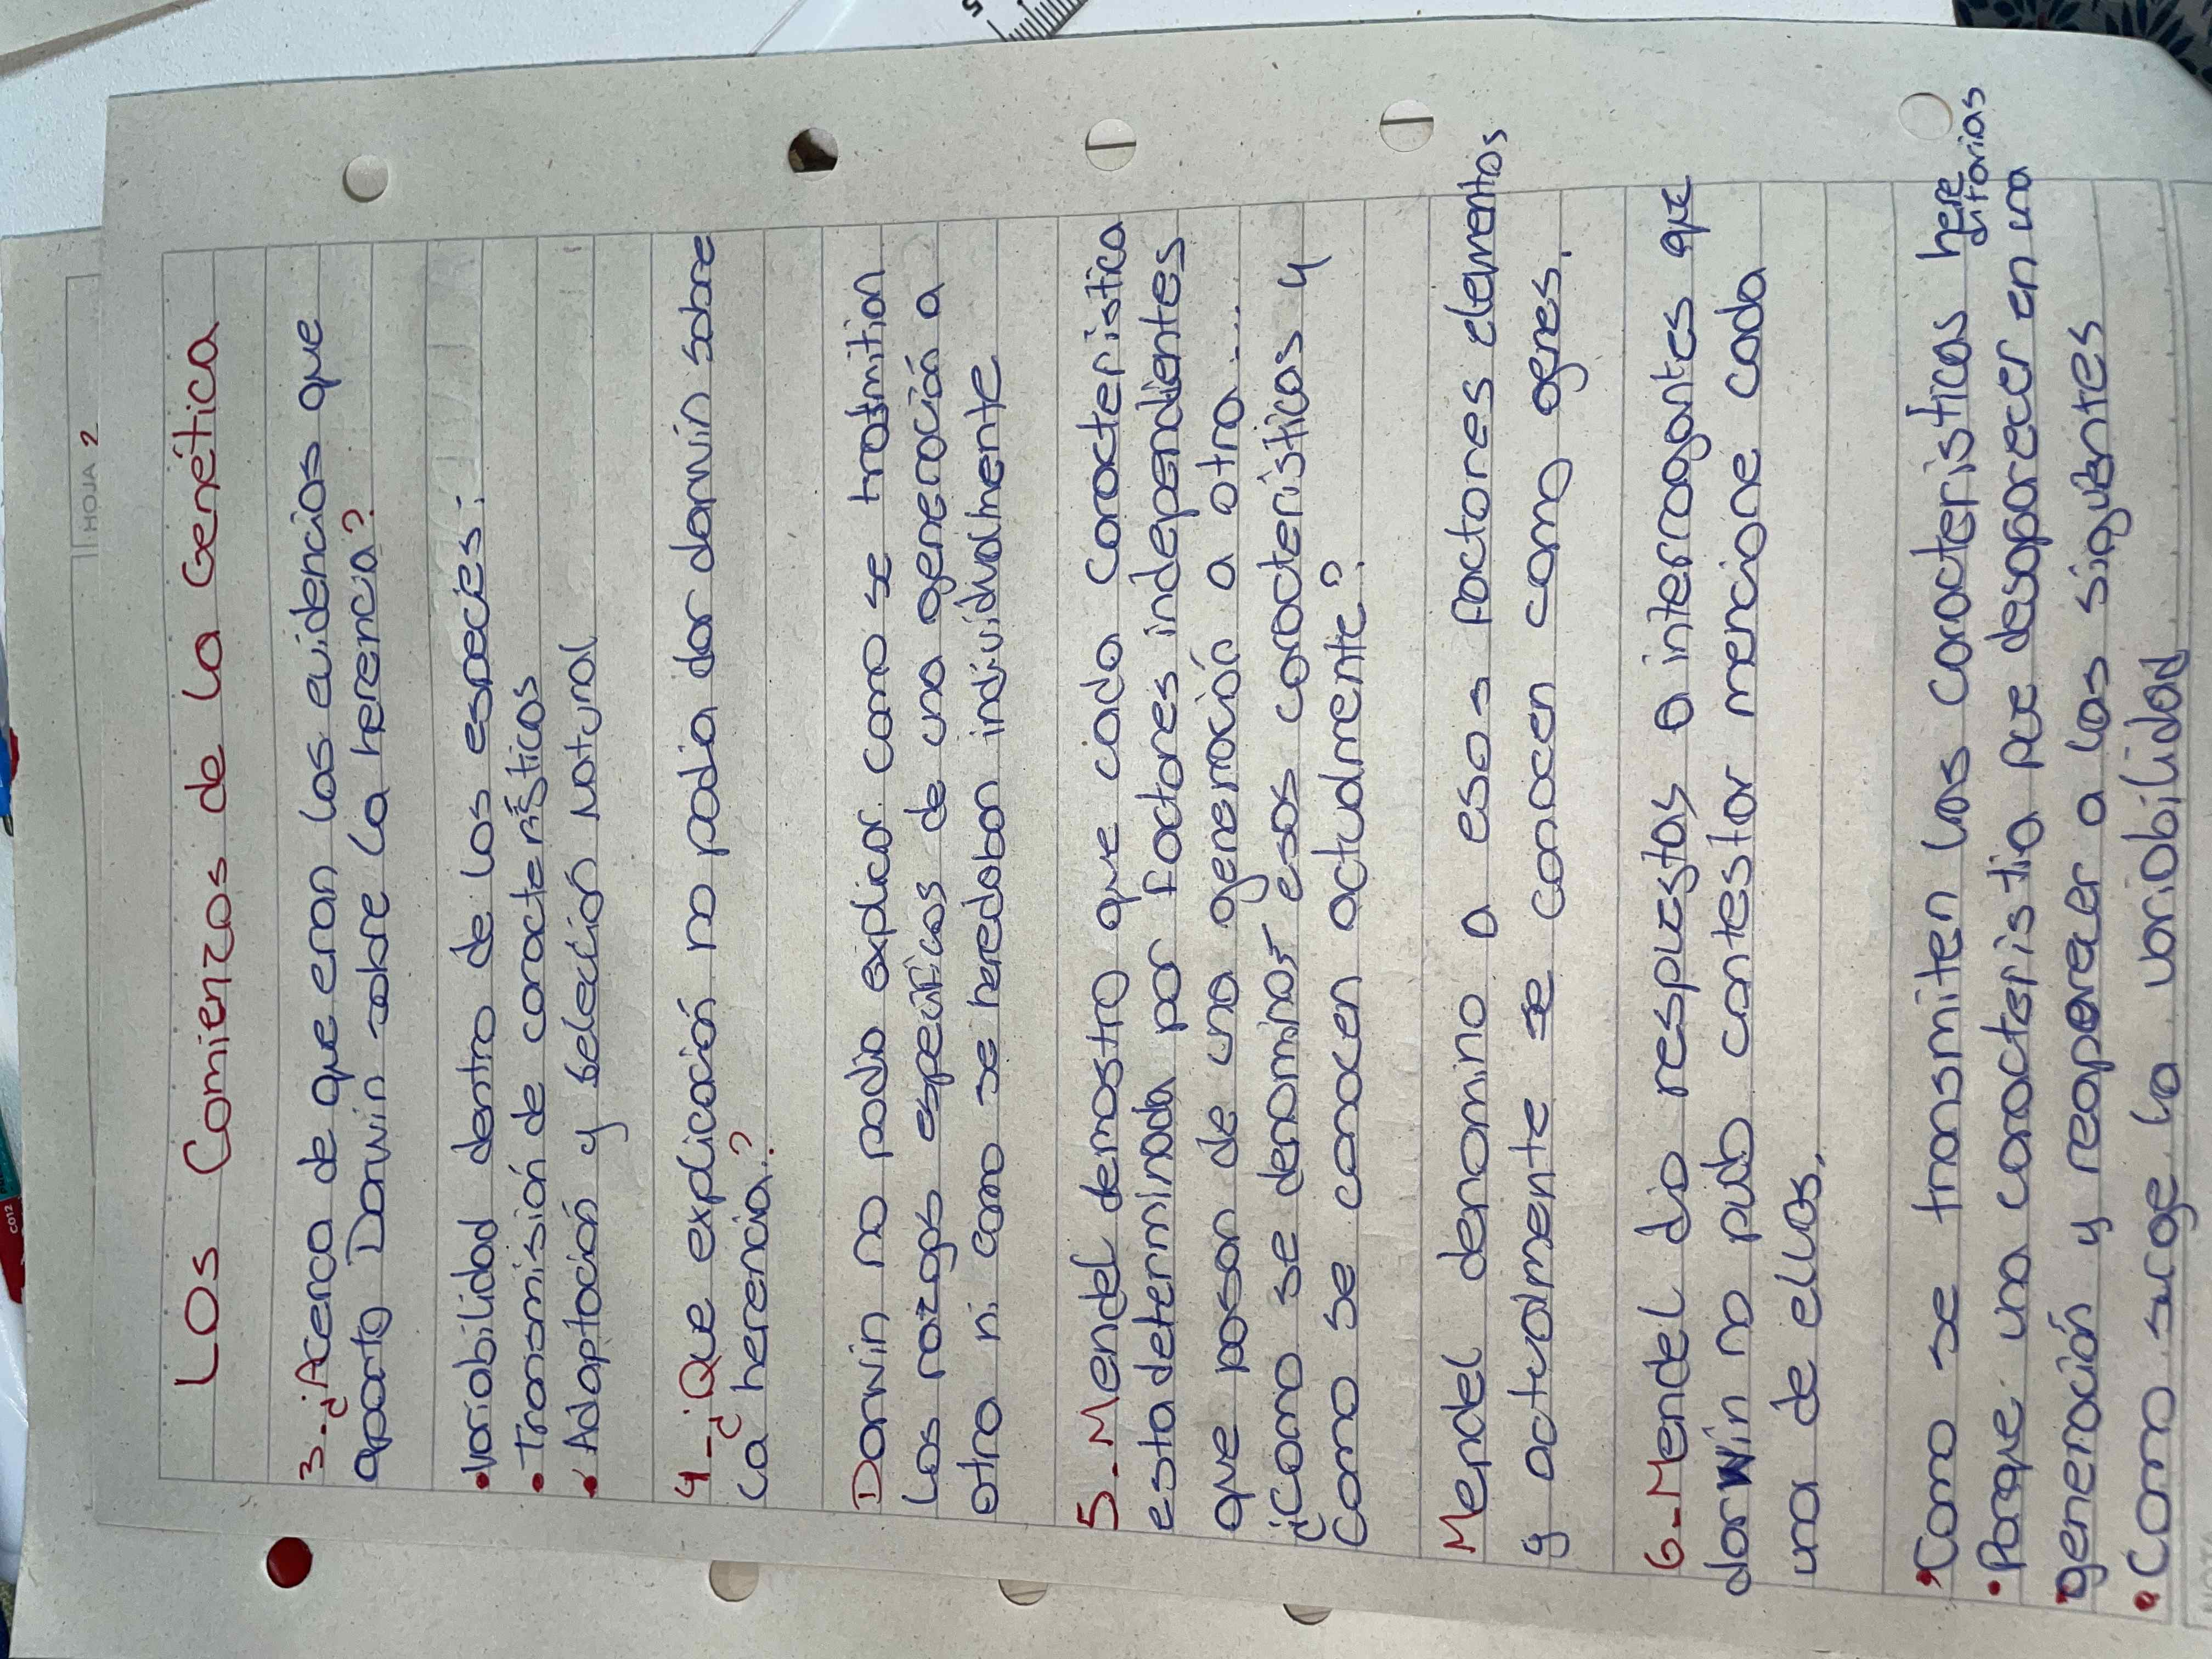 HOJA 2
Los Comienzos de la Genética
3-¿Acerca de que eran las evidencias que
aporto Darwin sobre la herencia?
• Variabilidad dentro de las especies:
• Transmisión de características
• Adaptación y selección Natural
4-¿Que explicación no podia dar darwin sobre
la herencia?
Darwin no podia explicar como se trasmitian
los razgos específicos de una generación a
otra ni como se heredaban individualmente
5-Mendel demostro que cada caracteristica
esta determinada por factores independientes
que pasan de una generación a otra...
¿Como se denominar esas caracteristicas y
como se conocen actualmente?
Mendel denomino a esos factores elementos
y actualmente se conocen como genes.
6-Mendel dio respuestas a interrogantes que
darwin no pudo contestar mencione cada
una de ellas.
• Como se transmiten las caracteristicas hereditarias
• Porque una caracteristia pue desaparecer en una
• generación y reaparecer a las siguentes
• Como surge la variabilidad
5
CO12